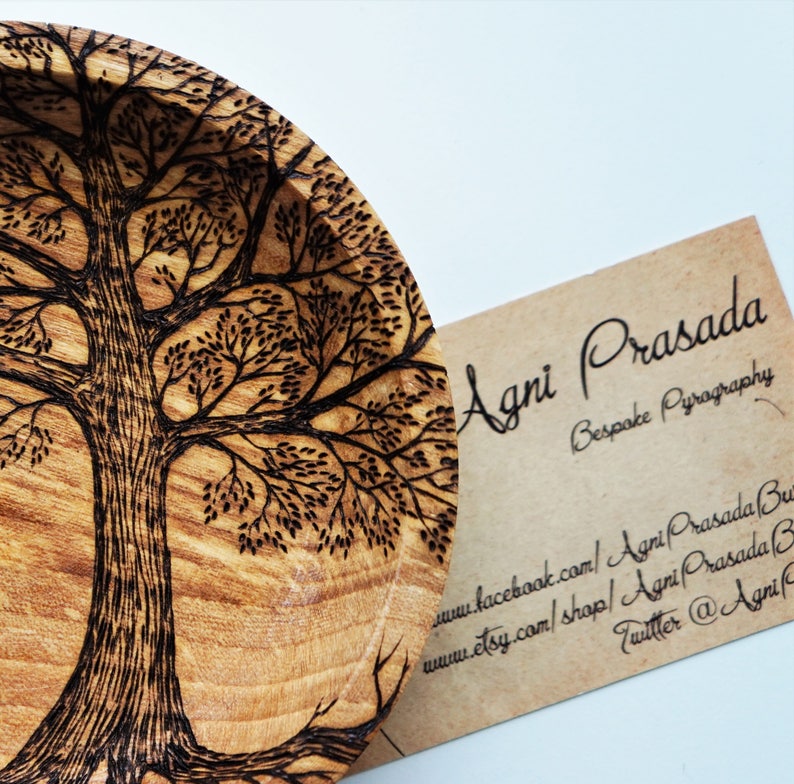 Agni Prasada
Bespoke Pyrography
www.facebook.com/ AgniPrasadaBu
www.etsy.com/shop/ AgniPrasadaB
Twitter @ AgniP